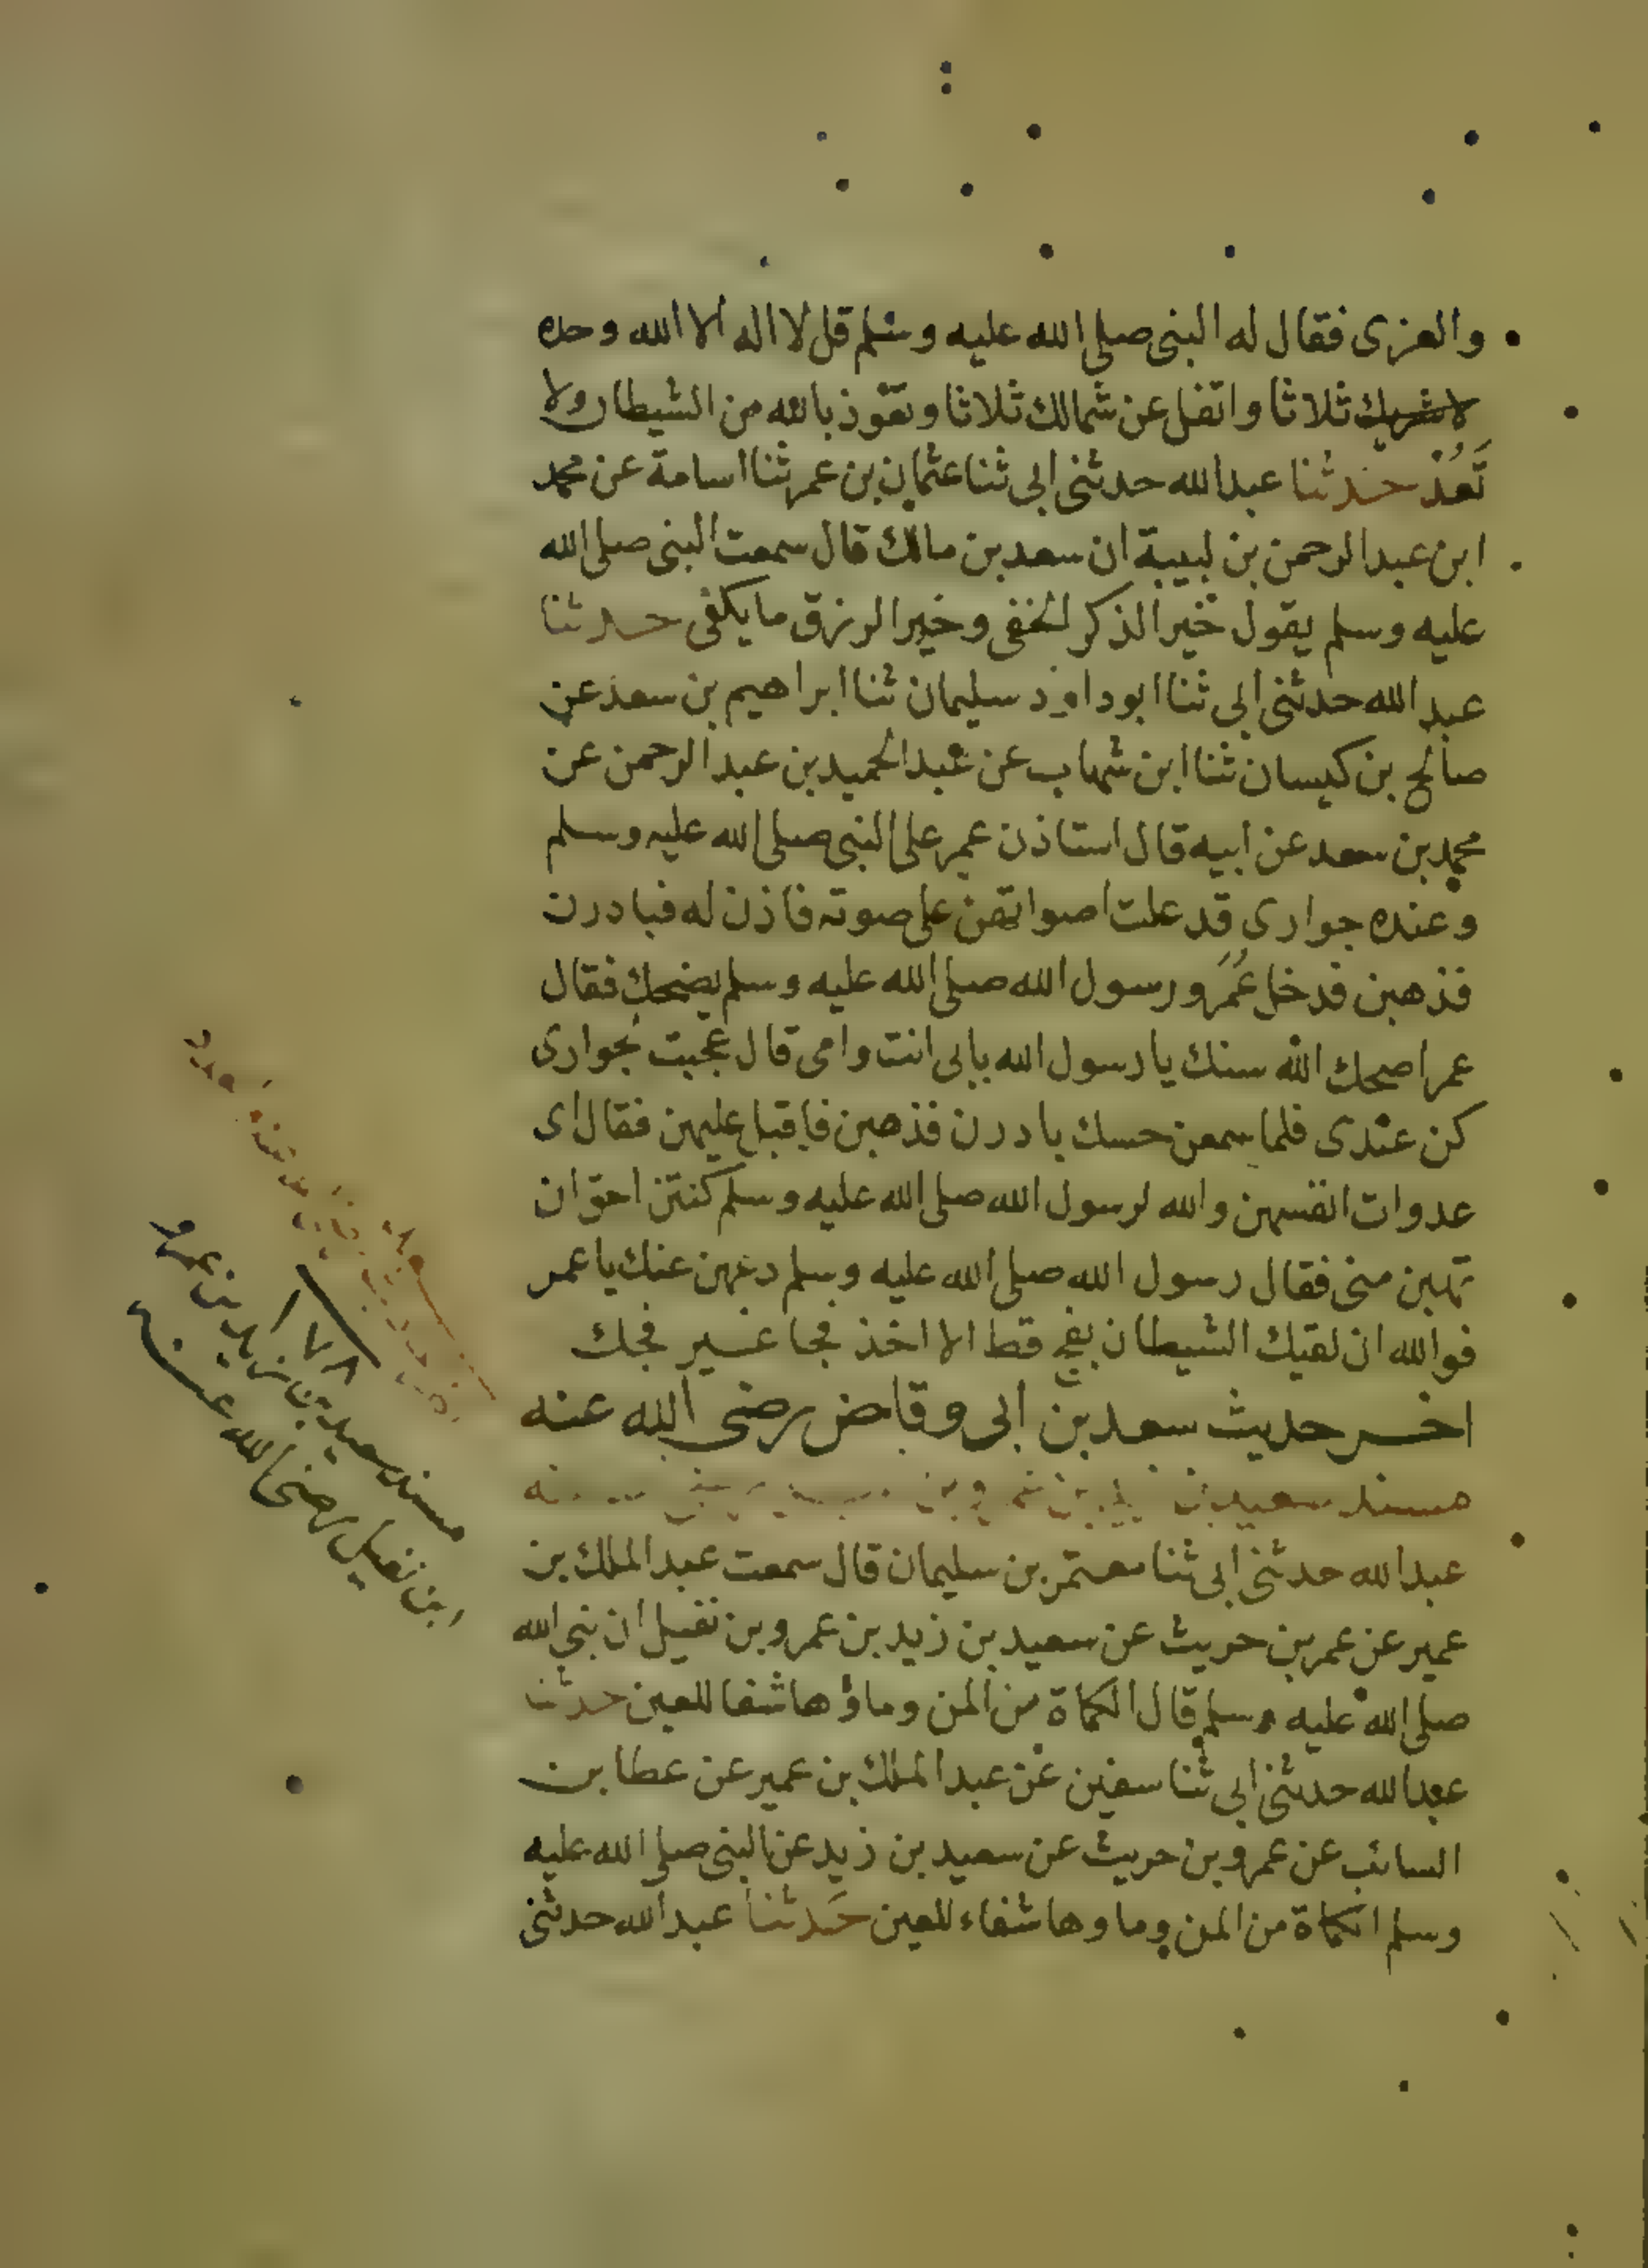 والعزى فقال له النبى صلى الله عليه وسلم قل لا اله الا الله وحده
لاشريك ثلاثا واتفل عن شمالك ثلاثا وتعوذ بالله من الشيطان ولا
تَعُدْ حدثنا عبدالله حدثنى ابى ثنا عثمان بن عمر ثنا اسامة عن محمد
ابن عبدالرحمن بن لبيبة ان سعد بن مالك قال سمعت النبى صلى الله
عليه وسلم يقول خير الذكر الخفى وخير الرزق ما يكفى حدثنا
عبدالله حدثنى ابى ثنا ابو داود سليمان ثنا ابراهيم بن سعد عن
صالح بن كيسان ثنا ابن شهاب عن عبدالحميد بن عبدالرحمن عن
محمد بن سعد عن ابيه قال استاذن عمر على النبى صلى الله عليه وسلم
وعنده جوارى قد علت اصواتهن على صوته فاذن له فبادرن
فذهبن فدخل عُمَر ورسول الله صلى الله عليه وسلم يضحك فقال
عمر اضحك الله سنك يا رسول الله بابى انت وامى قال عجبت لجوارى
كن عندى فلما سمعن حسك بادرن فذهبن فاقبل عليهن فقال اى
عدوات انفسهن والله لرسول الله صلى الله عليه وسلم كنتن احق ان
تهبن منى فقال رسول الله صلى الله عليه وسلم دعهن عنك يا عمر
فوالله ان لقيك الشيطان بفج قط الا اخذ فجا غير فجك
اخر حديث سعد بن ابى وقاص رضى الله عنه
مسند سعيد بن
عبدالله حدثنى ابى ثنا معتمر بن سليمان قال سمعت عبدالملك بن
عمير عن عمر بن حريث عن سعيد بن زيد بن عمرو بن نفيل ان نبى الله
صلى الله عليه وسلم قال الكماة من المن وماؤها شفا للعين حدثنا
عبدالله حدثنى ابى ثنا سفين عن عبدالملك بن عمير عن عطا بن
السائب عن عمرو بن حريث عن سعيد بن زيد عن النبى صلى الله عليه
وسلم الكماة من المن وماوها شفاء للعين حَدثنا عبدالله حدثنى
١٧٨
مسند سعيد بن زيد بن عمرو
ابن نفيل رضى الله عنه